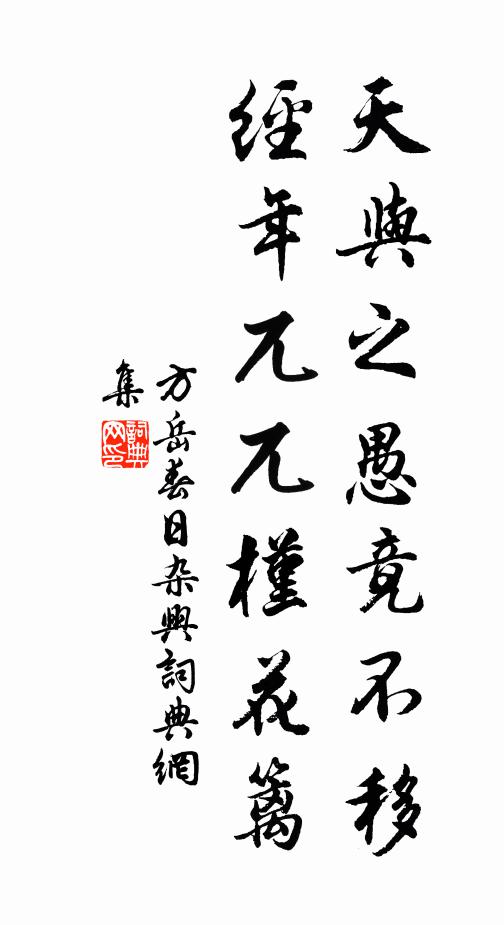 天與之愚竟不移
經年兀兀槿花籬
方岳春日杂興詞典網
集
詞典网印